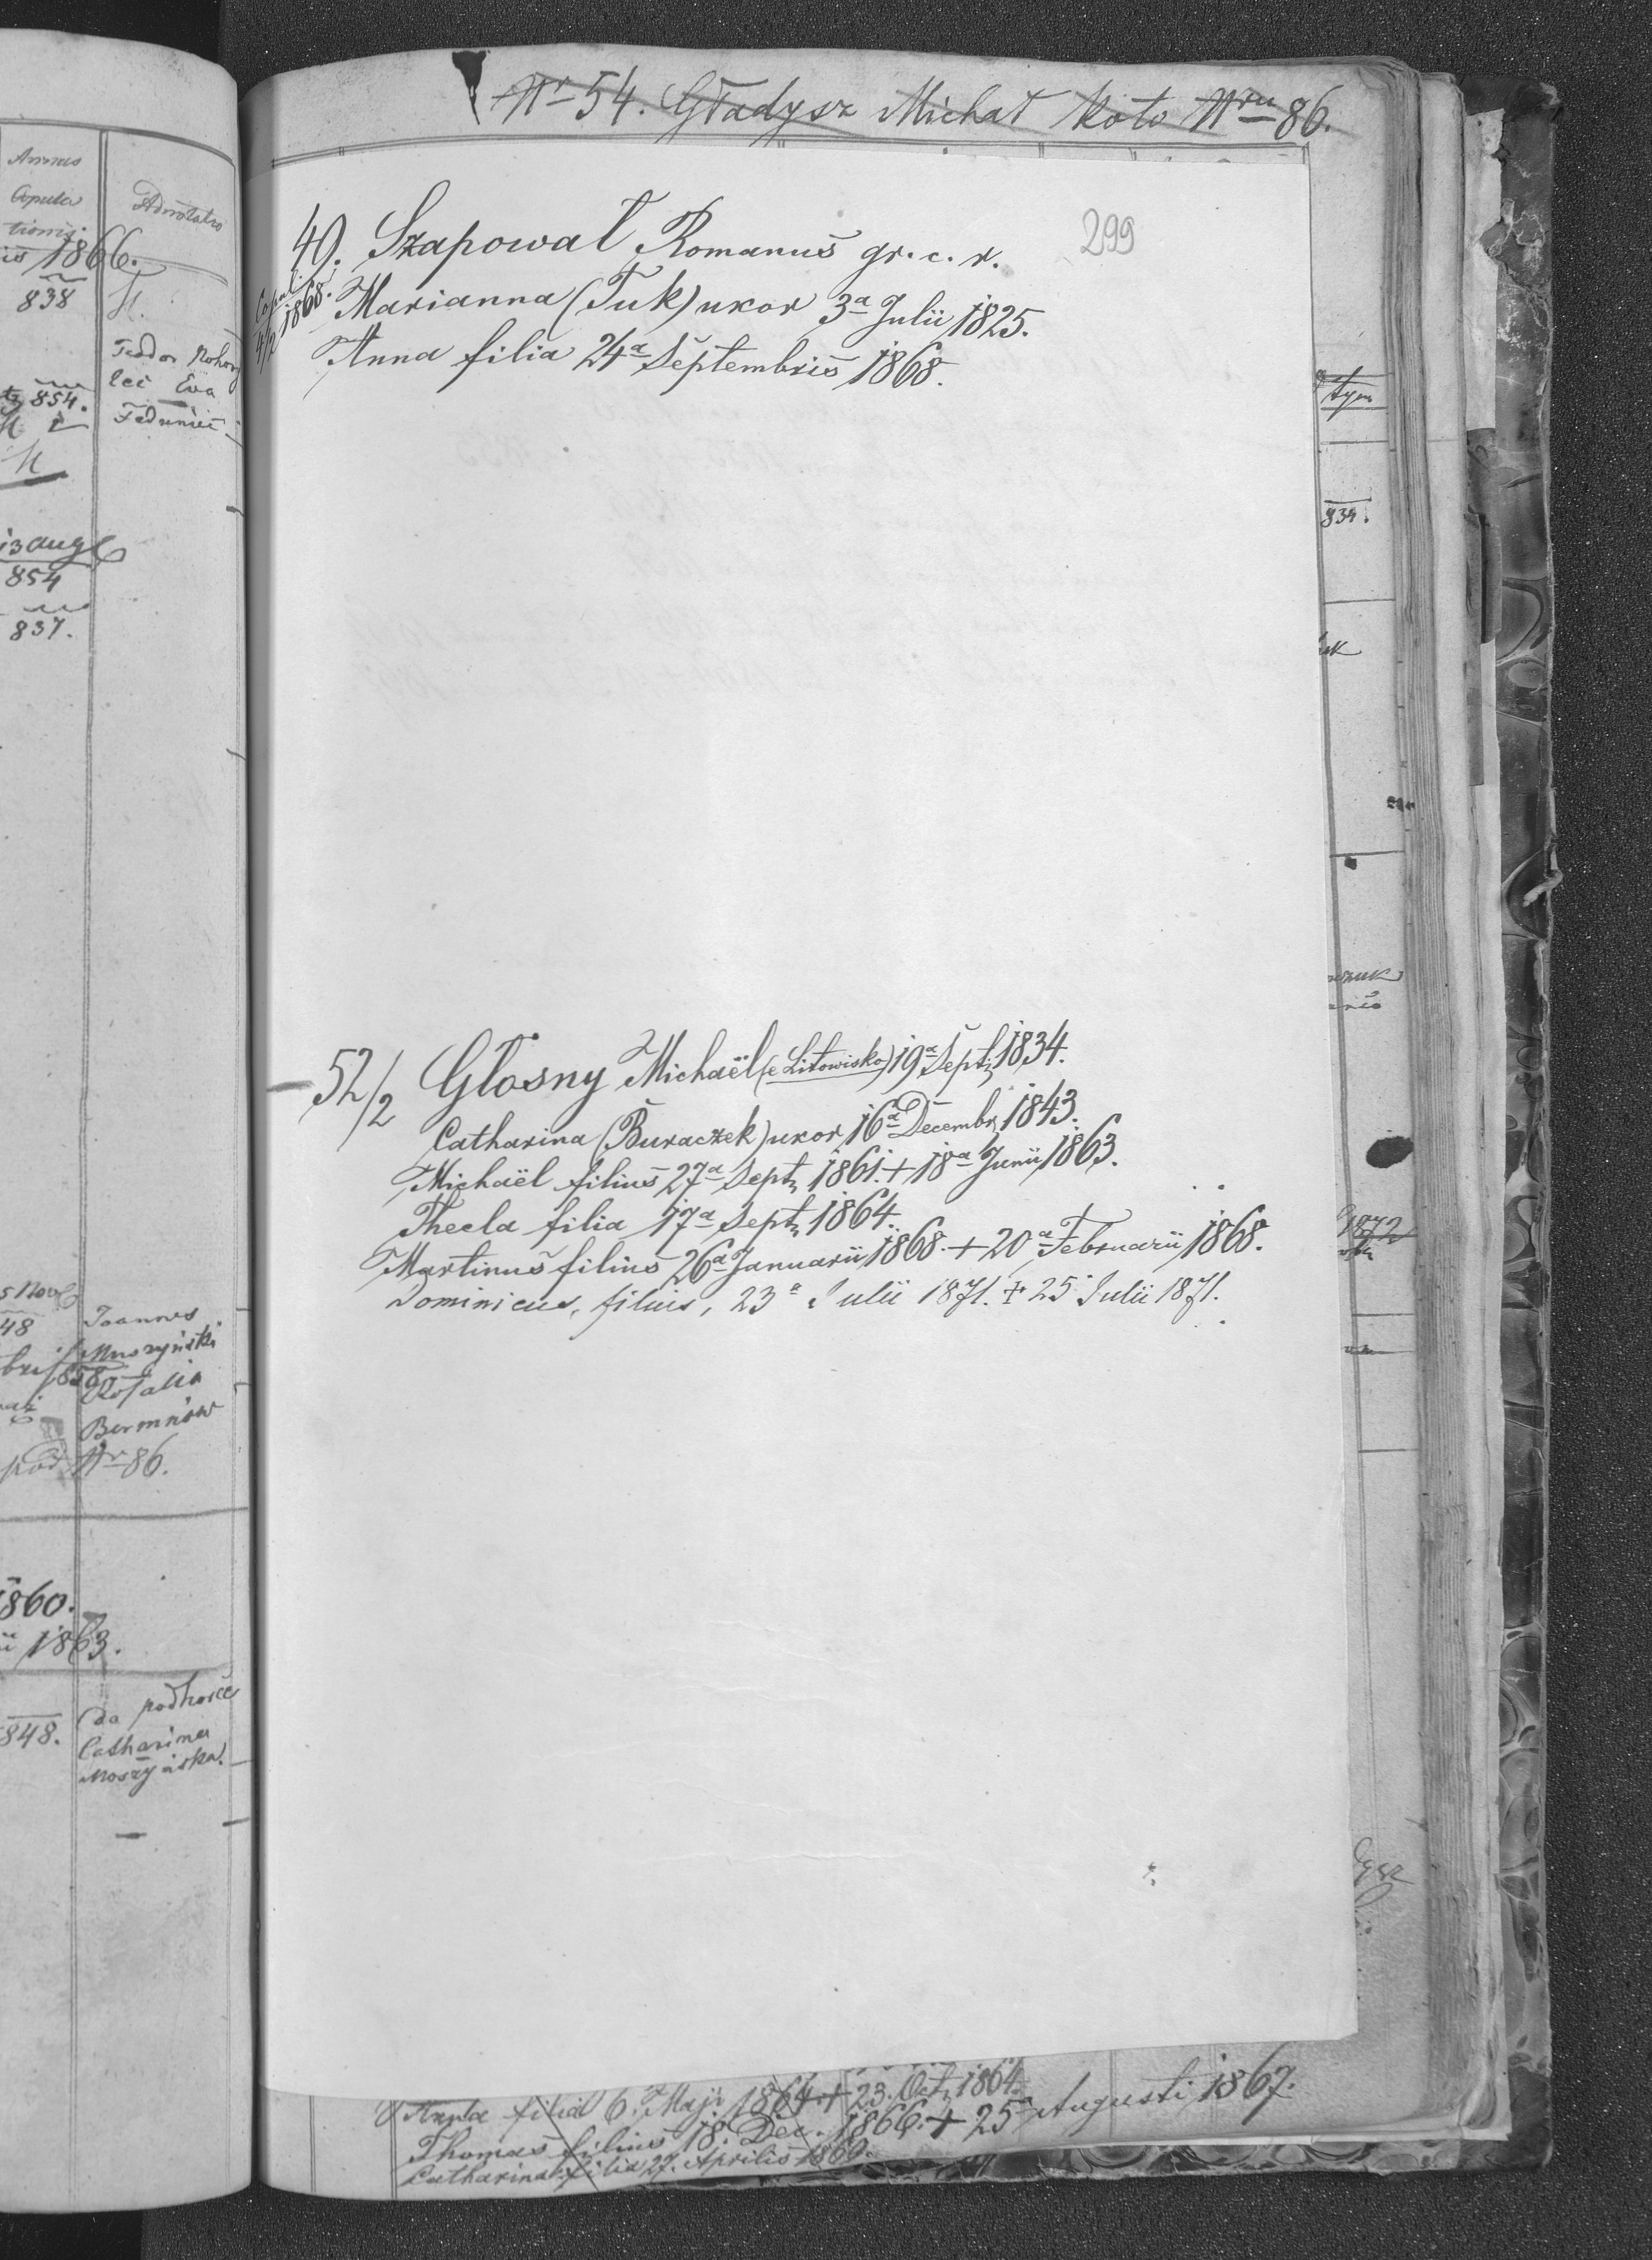 Annus
Copula
tionis
Adnotatio
1866.
838
Teodor
lei Eva
854.
13 Aug
854
837.
48
Joannes
Muszyński
858
Rosalia
pod Nr 86.
1860.
1863.
848.
da podhorce
Catharina
Moszyńska.
Nr 54. Gładysz Michał koło Nru 86.
299
49. Szapował Romanus gr. c. r.
Copul. 4/2 1868.
Marianna (Tuk) uxor 3a Julii 1825.
Anna filia 24a Septembris 1868.
52/2 Głosny Michaël (e Litowisko) 19a Sept. 1834.
Catharina (Buraczek) uxor 16a Decembr. 1843.
Michaël filius 27a Sept. 1861. + 18a Junii 1863.
Thecla filia 17a Sept. 1864.
Martinus filius 26a Januarii 1868. + 20a Februarii 1868.
Dominicus, filius, 23a Julii 1871. + 25 Julii 1871.
834.
1872
Anna filia 6. Maji 1864. + 23. Oct. 1864.
Thomas filius 18. Dec. 1866. + 25 Augusti 1867.
Catharina filia 27. Aprilis 1869.